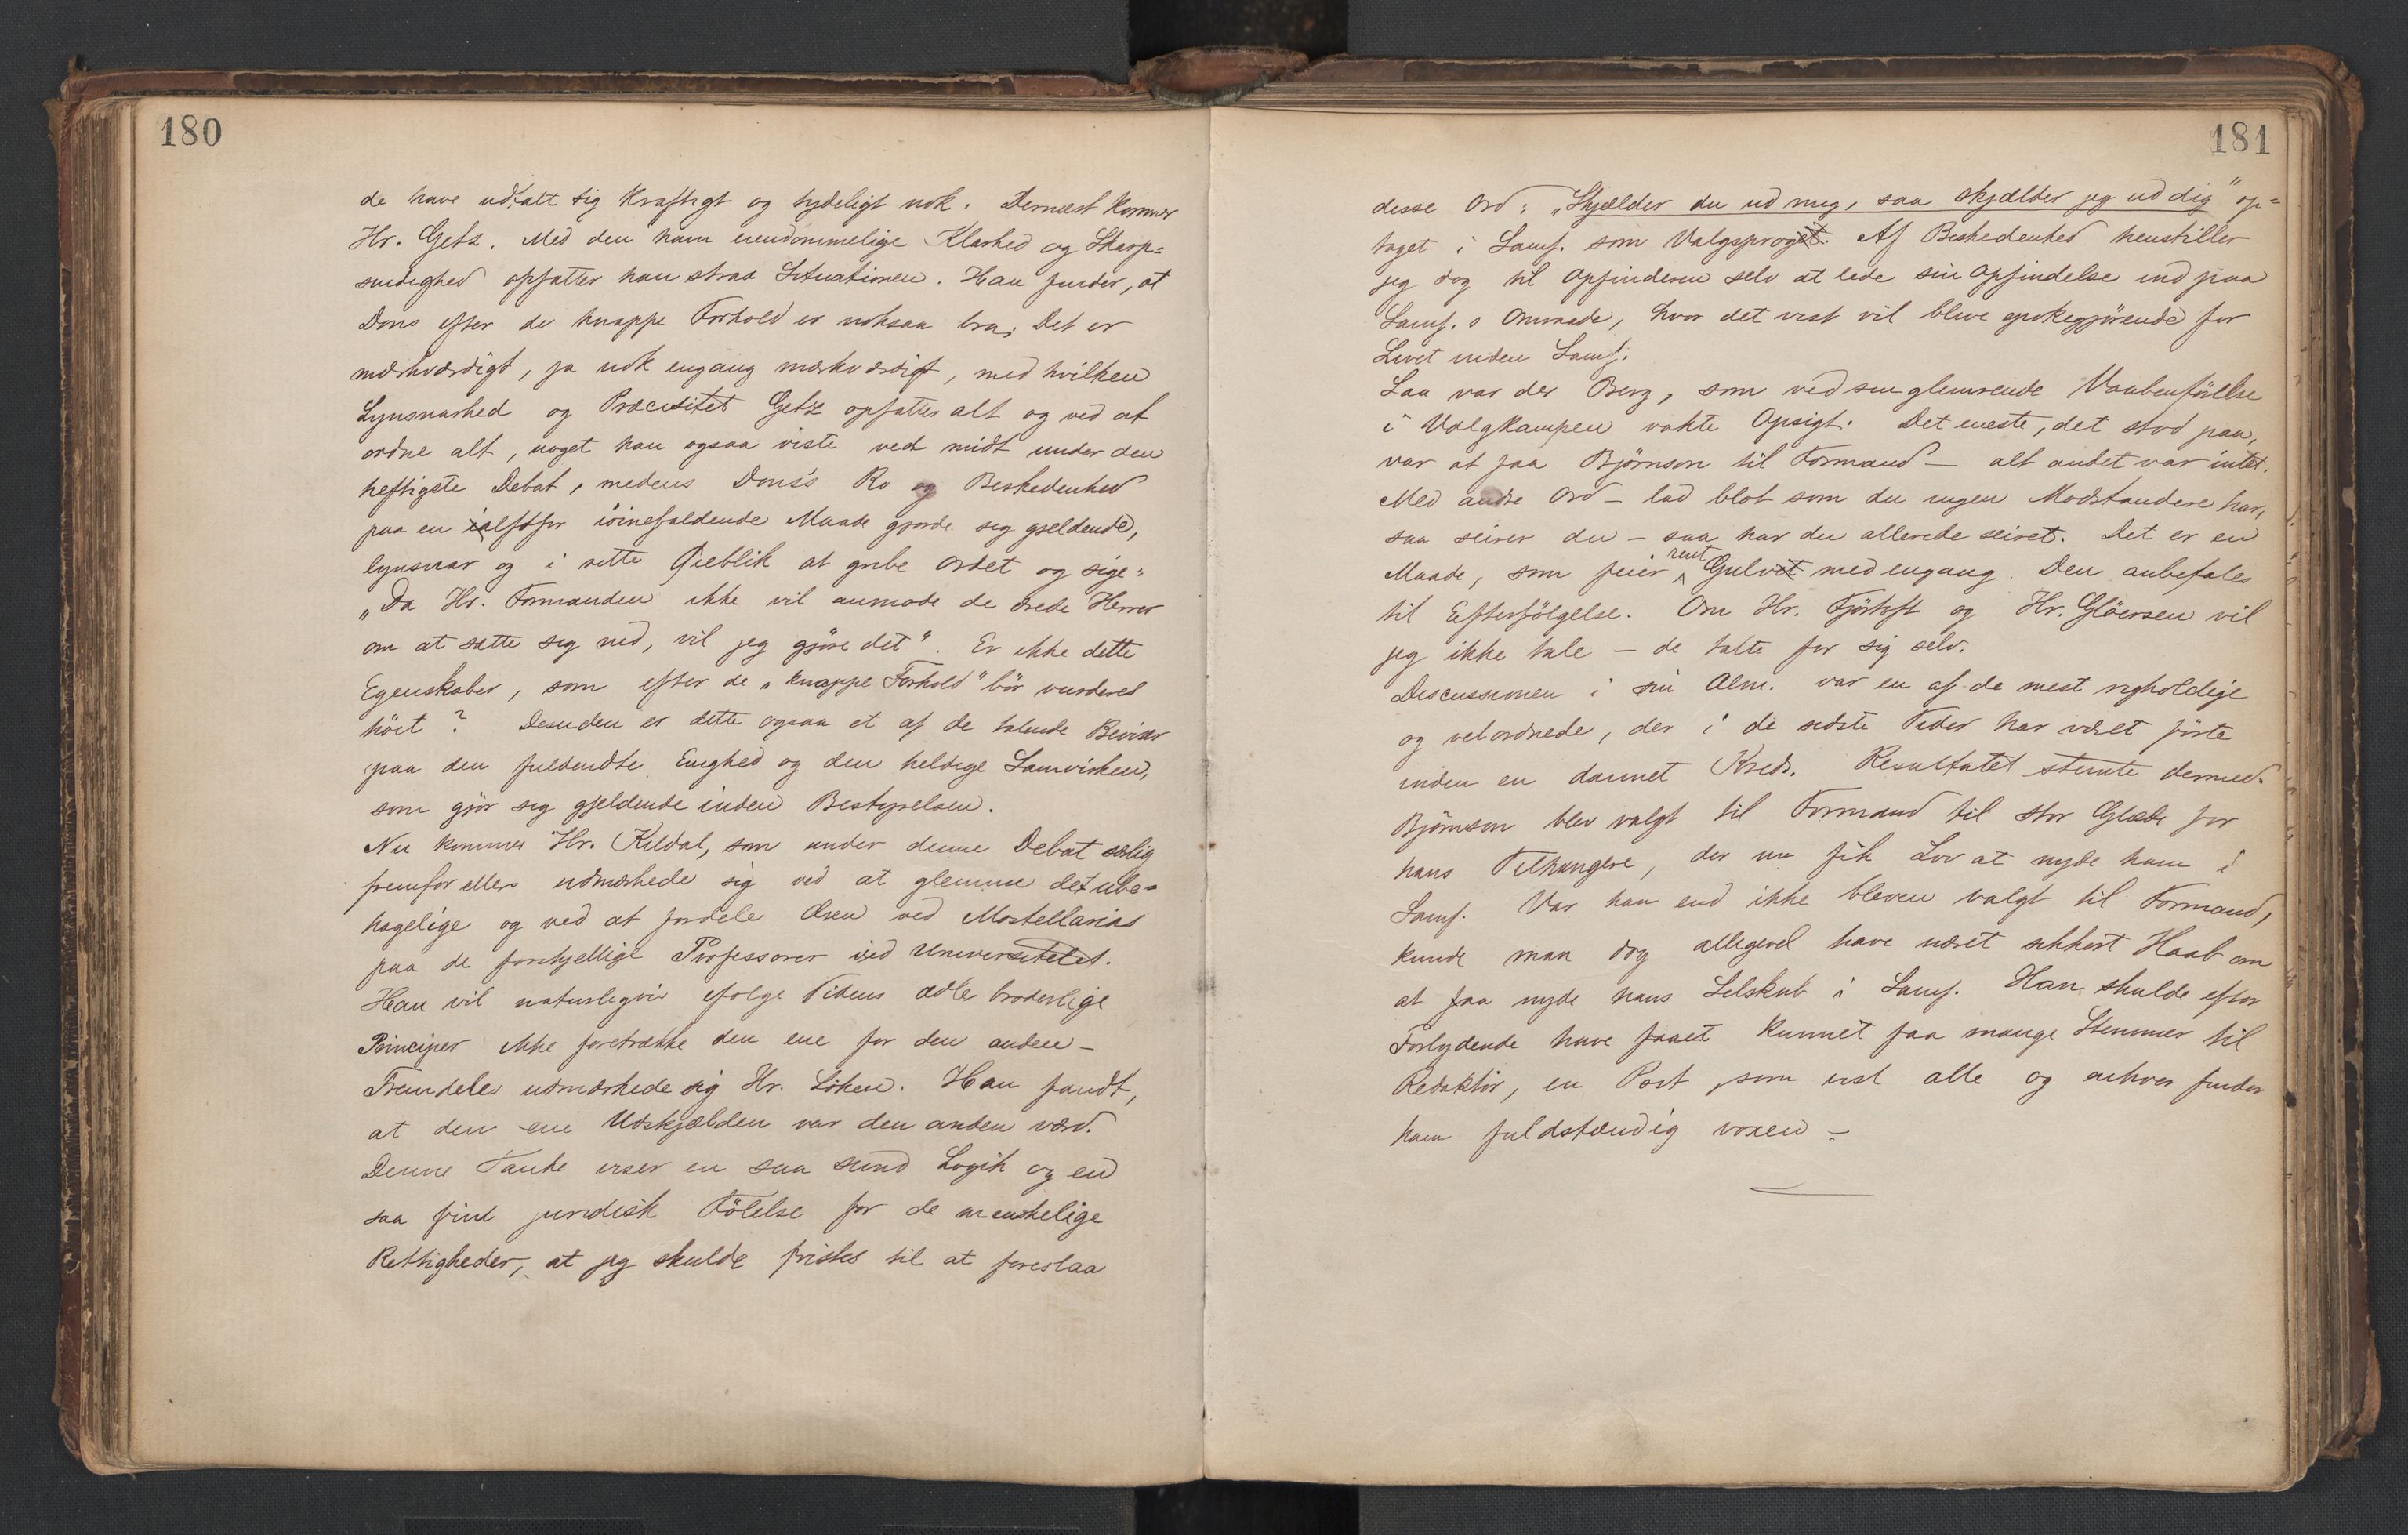 180
de have udtalt sig kraftigt og tydeligt nok. Dernæst kommer
Hr. Getz. Med den ham eiendommelige Klarhed og Skarp=
sindighed opfatter han strax Situationen. Han finder, at
Dons efter de knappe Forhold er noksaa bra; Det er
mærkværdigt, ja nok engang mærkværdigt, med hvilken
Lynsnarhed og Præcisitet Getz opfatter alt og ved at
ordne alt, noget han ogsaa viste ved midt under den
heftigste Debat, medens Dons's Ro og Beskedenhed
paa en altfor iöinefaldende Maade gjorde sig gjeldende,
lynsnar og i rette Øieblik at gribe Ordet og sige:
"Da Hr. Formanden ikke vil anmode de ærede Herrer
om at sætte sig ned, vil jeg gjøre det". Er ikke dette
Egenskaber, som efter de "knappe Forhold" bör vurderes
höit? Desuden er dette ogsaa et af de talende Beviser
paa den fuldendte Enighed og den heldige Samvirken,
som gjör sig gjeldende inden Bestyrelsen.
Nu kommer Hr. Kildal, som under denne Debat særlig
fremfor ellers udmærkede sig ved at glemme det ube=
hagelige og ved at fordele Æren ved Mostellarias
paa de forskjellige Professorer ved Universitetet.
Han vil naturligvis ifølge Tidens ædle broderlige
Principer ikke foretrække den ene for den anden –
Fremdeles udmærkede sig Hr. Löken. Han fandt,
at den ene Udskjælden var den anden værd.
Denne Tanke viser en saa sund Logik og en
saa fint juridisk Fölelse for de menskelige
Rettigheder, at jeg skulde fristes til at foreslaa
181
desse Ord: "Skjælder du ud mig, saa skjælder jeg ud dig" op=
taget i Samf. som Valgsproget. Af Beskedenhed henstiller
jeg dog til Opfinderen selv at lede sin Opfindelse ind paa
Samf.s Omraade, hvor det vist vil blive epokegjörende for
Livet inden Samf.
Saa var der Berg, som ved sin glimrende Vaabenförelse
i Valgkampen vakte Opsigt. Det eneste, det stod paa,
var at faa Björnson til Formand – alt andet var intet.
Med andre Ord – lad blot som du ingen Modstandere har,
saa seirer du – saa har du allerede seiret. Det er en
Maade, som feier rent Gulvet med engang. Den anbefales
til Efterfölgelse. Om Hr. Fjörtoft og Hr. Glöersen vil
jeg ikke tale – de talte for sig selv.
Discussionen i sin Alm. var en af de mest righoldige
og velordnede, der i de sidste Tider har været förte
inden en dannet Kreds. Resultatet stemte dermed.
Björnson blev valgt til Formand til stor Glæde for
hans Tilhængere, der nu fik Lov at nyde ham i
Samf. Var han end ikke bleven valgt til Formand,
kunde man dog alligevel have næret sikkert Haab om
at faa nyde hans Selskab i Samf. Han skulde efter
Forlydende have faaet kunnet faa mange Stemmer til
Redaktör, en Post, som vist alle og enhver finder
ham fuldstændig voxen –